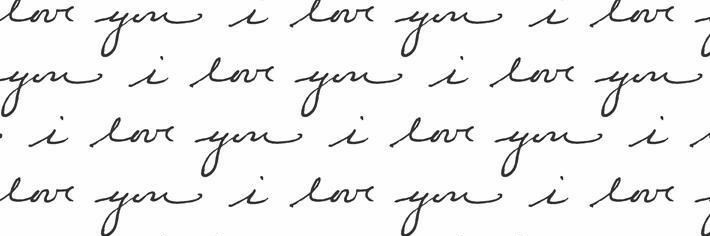 love you i love you i love
you i love you i love you
i love you i love you i
love you i love you i love